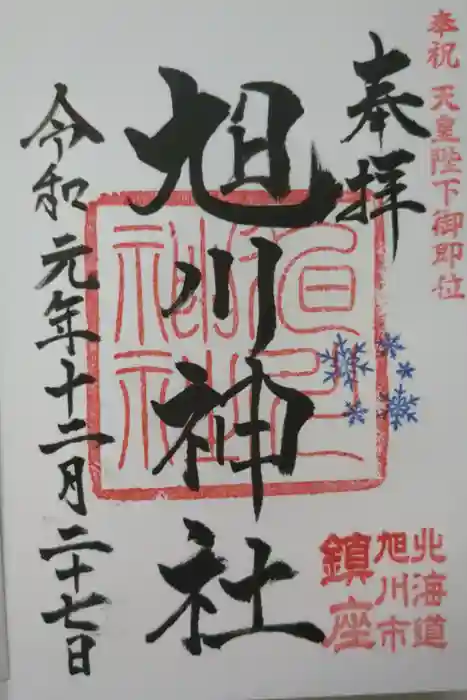 奉祝 天皇陛下御即位
奉拝
旭川神社
旭川神社
北海道
旭川市
鎮座
令和元年十二月二十七日